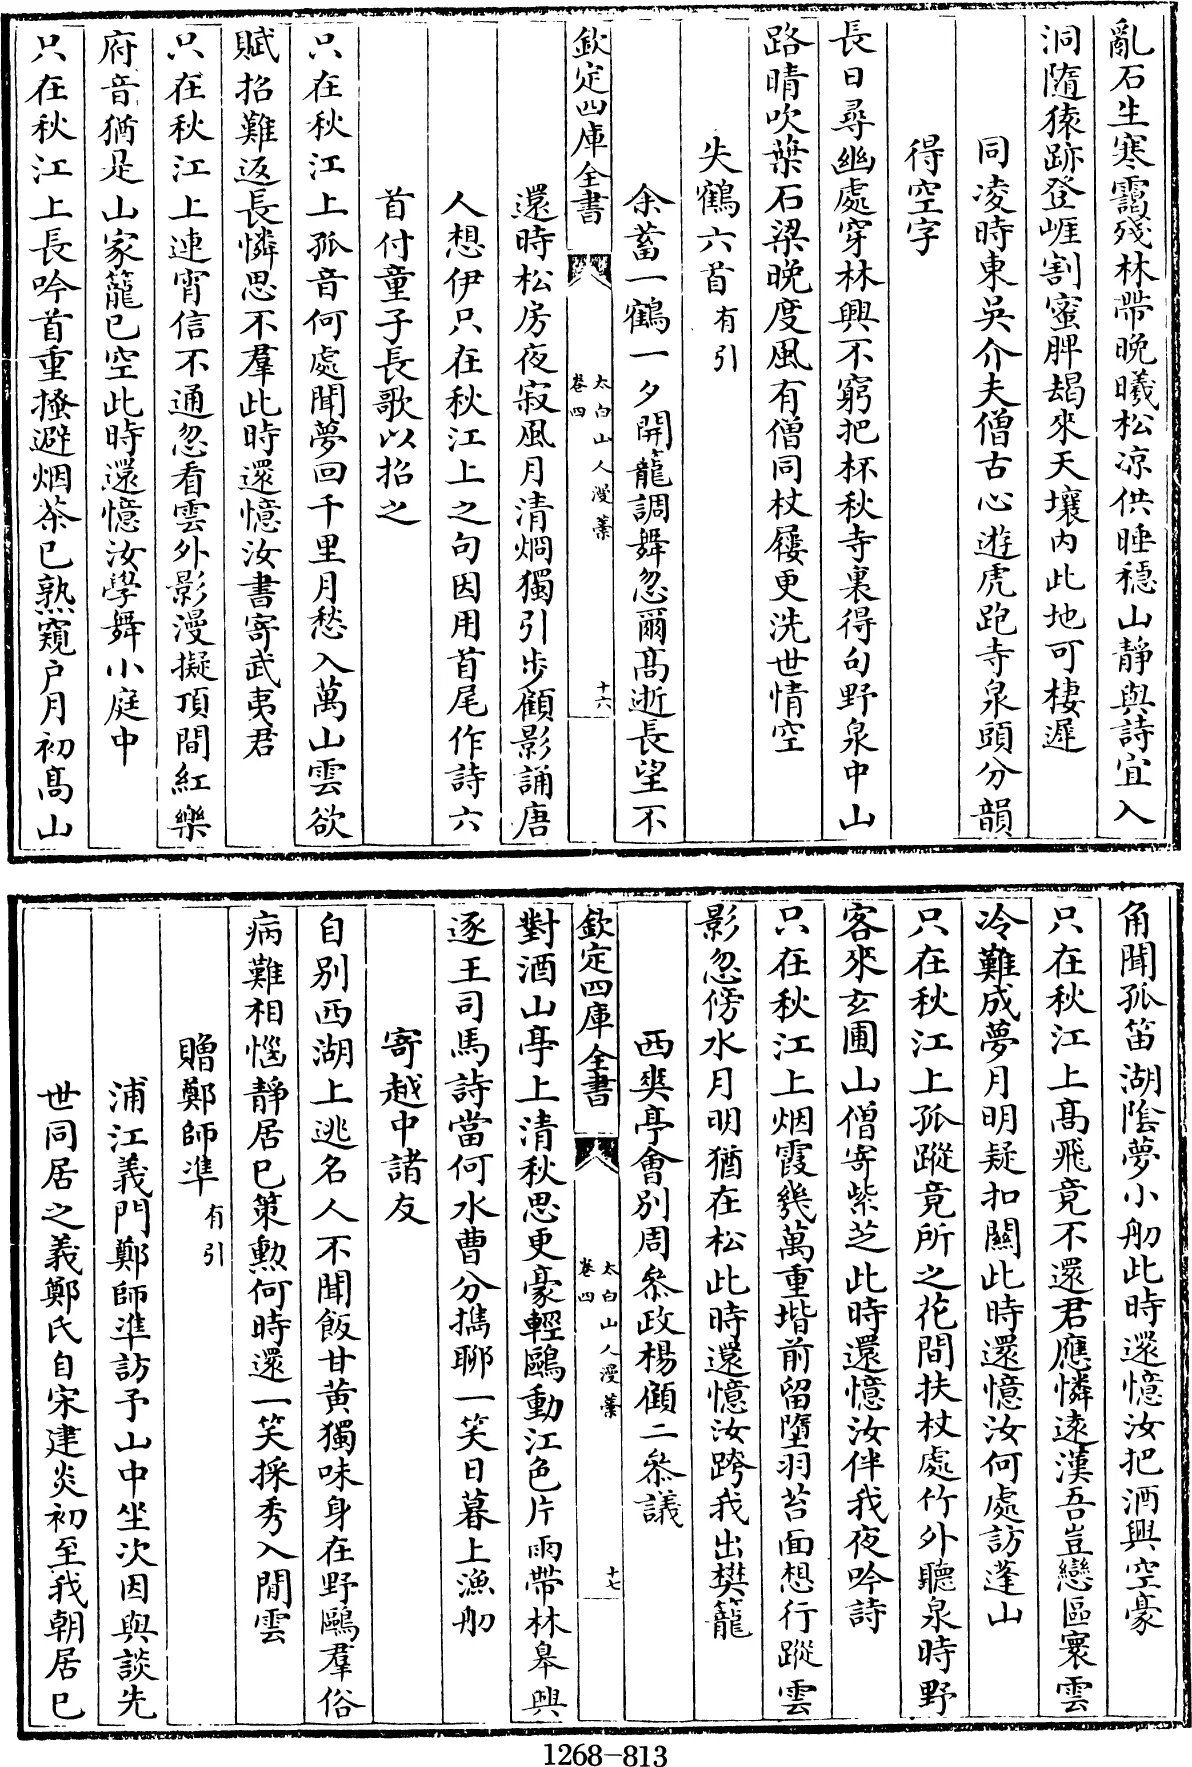 亂石生寒靄殘林帶晚曦松凉供睡穩山靜與詩宜入
洞隨猿跡登崕割蜜脾朅來天壤内此地可棲遲
同凌時東吳介夫僧古心遊虎跑寺泉頭分韻
得空字
長日尋幽處穿林興不窮把杯秋寺裏得句野泉中山
路晴吹葉石梁晚度風有僧同杖屨更洗世情空
失鶴六首有引
余蓄一鶴一夕開籠調舞忽爾高逝長望不
欽定四庫全書
太白山人漫藁
卷四
十六
還時松房夜寂風月清烱獨引步顧影誦唐
人想伊只在秋江上之句因用首尾作詩六
首付童子長歌以招之
只在秋江上孤音何處聞夢回千里月愁入萬山雲欲
賦招難返長憐思不羣此時還憶汝書寄武夷君
只在秋江上連宵信不通忽看雲外影漫擬頂間紅樂
府音猶是山家籠已空此時還憶汝學舞小庭中
只在秋江上長吟首重搔避烟茶已熟窺户月初高山
角聞孤笛湖陰夢小舠此時還憶汝把酒興空豪
只在秋江上高飛竟不還君應憐遠漢吾豈戀區寰雲
冷難成夢月明疑扣關此時還憶汝何處訪蓬山
只在秋江上孤蹤竟所之花間扶杖處竹外聽泉時野
客來玄圃山僧寄紫芝此時還憶汝伴我夜吟詩
只在秋江上烟霞幾萬重堦前留墮羽苔面想行蹤雲
影忽傍水月明猶在松此時還憶汝跨我出樊籠
西爽亭會别周叅政楊顧二叅議
欽定四庫全書
太白山人漫藁
卷四
十七
對酒山亭上清秋思更豪輕鷗動江色片雨帶林皋興
逐王司馬詩當何水曹分攜聊一笑日暮上漁舠
寄越中諸友
自别西湖上逃名人不聞飯甘黄獨味身在野鷗羣俗
病難相惱靜居已策勲何時還一笑採秀入閒雲
贈鄭師凖有引
浦江義門鄭師凖訪予山中坐次因與談先
世同居之義鄭氏自宋建炎初至我朝居已
1268-813